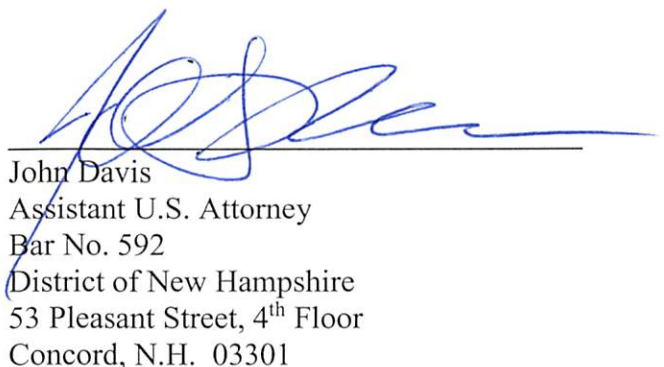 John Davis
Assistant U.S. Attorney
Bar No. 592
District of New Hampshire
53 Pleasant Street, 4th Floor
Concord, N.H.  03301